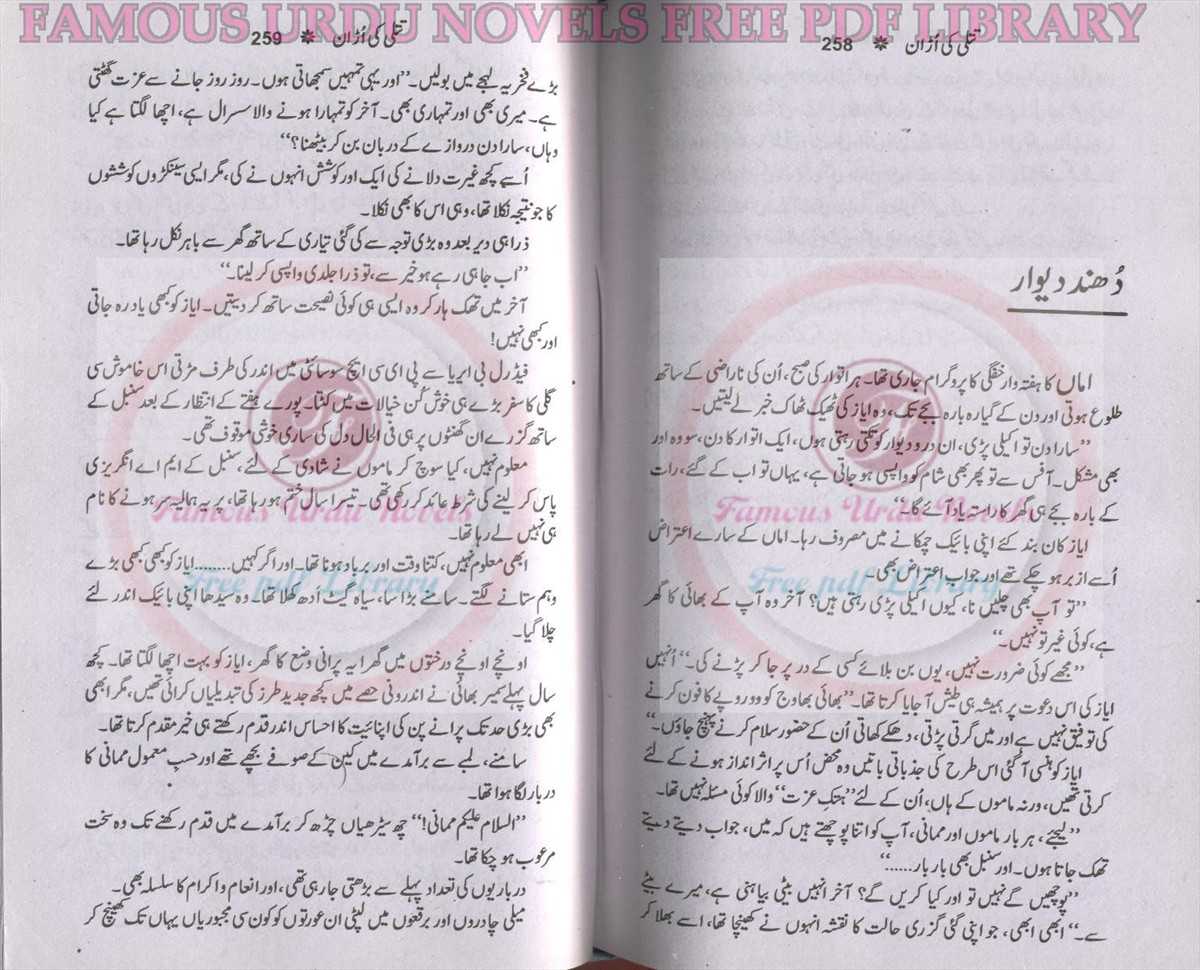 FAMOUS URDU NOVELS FREE PDF LIBRARY
تتلی کی اُڑان ❋ 258
دُھند دیوار
اماں کا ہفتہ وار خفگی کا پروگرام جاری تھا۔ ہر اتوار کی صبح، اُن کی ناراضی کے ساتھ
طلوع ہوتی اور دن کے گیارہ بارہ بجے تک، وہ ایاز کی ٹھیک ٹھاک خبر لے لیتیں۔
”سارا دن تو اکیلی پڑی، ان در و دیوار کو تکتی رہتی ہوں، ایک اتوار کا دن، سو وہ اور
بھی مشکل۔ آفس سے تو پھر بھی شام کو واپسی ہو جاتی ہے، یہاں تو اب کے گئے، رات
کے بارہ بجے ہی گھر کا راستہ یاد آئے گا۔“
ایاز کان بند کئے اپنی بائیک چمکانے میں مصروف رہا۔ اماں کے سارے اعتراض
اُسے ازبر ہو چکے تھے اور جواب اعتراض بھی۔
”تو آپ بھی چلیں نا، کیوں اکیلی پڑی رہتی ہیں؟ آخر وہ آپ کے بھائی کا گھر
ہے، کوئی غیر تو نہیں۔“
”مجھے کوئی ضرورت نہیں، یوں بن بلائے کسی کے در پر جا کر پڑنے کی۔“ اُنہیں
ایاز کی اس دعوت پر ہمیشہ ہی طیش آ جایا کرتا تھا۔ ”بھائی بھاوج کو دو روپے کا فون کرنے
کی توفیق نہیں ہے اور میں گرتی پڑتی، دھکے کھاتی اُن کے حضور سلام کرنے پہنچ جاؤں۔“
ایاز کو ہنسی آ گئی اس طرح کی جذباتی باتیں وہ محض اُس پر اثر انداز ہونے کے لئے
کرتی تھیں، ورنہ ماموں کے ہاں، اُن کے لئے ”ہتک عزت“ والا کوئی مسئلہ نہیں تھا۔
”لیجئے، ہر بار ماموں اور ممانی، آپ کو اتنا پوچھتے ہیں کہ میں، جواب دیتے دیتے
تھک جاتا ہوں۔ اور سنبل بھی بار بار......“
”پوچھیں گے نہیں تو اور کیا کریں گے؟ آخر انہیں بیٹی بیاہنی ہے، میرے بیٹے
سے۔“ ابھی ابھی، جو اپنی گئی گزری حالت کا نقشہ انہوں نے کھینچا تھا، اسے بھلا کر
تتلی کی اُڑان ❋ 259
بڑے فخریہ لہجے میں بولیں۔ ”اور یہی تمہیں سمجھاتی ہوں۔ روز روز جانے سے عزت گھٹتی
ہے۔ میری بھی اور تمہاری بھی۔ آخر کو تمہارا ہونے والا سسرال ہے، اچھا لگتا ہے کیا
وہاں، سارا دن دروازے کے دربان بن کر بیٹھنا؟“
اُسے کچھ غیرت دلانے کی ایک اور کوشش انہوں نے کی، مگر ایسی سینکڑوں کوششوں
کا جو نتیجہ نکلا تھا، وہی اس کا بھی نکلا۔
ذرا ہی دیر بعد وہ بڑی توجہ سے کی گئی تیاری کے ساتھ گھر سے باہر نکل رہا تھا۔
”اب جا ہی رہے ہو خیر سے، تو ذرا جلدی واپسی کر لینا۔“
آخر میں تھک ہار کر وہ ایسی ہی کوئی نصیحت ساتھ کر دیتیں۔ ایاز کو کبھی یاد رہ جاتی
اور کبھی نہیں!
فیڈرل بی ایریا سے پی ای سی ایچ سوسائٹی میں اندر کی طرف مڑتی اس خاموش سی
گلی کا سفر بڑے ہی خوش کُن خیالات میں کٹتا۔ پورے ہفتے کے انتظار کے بعد سنبل کے
ساتھ گزرے ان گھنٹوں پر ہی فی الحال دل کی ساری خوشی موقوف تھی۔
معلوم نہیں، کیا سوچ کر ماموں نے شادی کے لئے، سنبل کے ایم اے انگریزی
پاس کر لینے کی شرط عائد کر رکھی تھی۔ تیسرا سال ختم ہو رہا تھا، پر یہ ہمالیہ سر ہونے کا نام
ہی نہیں لے رہا تھا۔
ابھی معلوم نہیں، کتنا وقت اور برباد ہونا تھا۔ اور اگر کہیں......... ایاز کو کبھی کبھی بڑے
وہم ستانے لگتے۔ سامنے بڑا سا، سیاہ گیٹ اُدھ کھلا تھا۔ وہ سیدھا اپنی بائیک اندر لئے
چلا گیا۔
اونچے اونچے درختوں میں گھرا یہ پرانی وضع کا گھر، ایاز کو بہت اچھا لگتا تھا۔ کچھ
سال پہلے سمیر بھائی نے اندرونی حصے میں کچھ جدید طرز کی تبدیلیاں کرائی تھیں، مگر ابھی
بھی بڑی حد تک پرانے پن کی اپنائیت کا احساس اندر قدم رکھتے ہی خیر مقدم کرتا تھا۔
سامنے، لمبے سے برآمدے میں کین کے صوفے بچھے تھے اور حسبِ معمول ممانی کا
دربار لگا ہوا تھا۔
”السلام علیکم ممانی!“ چھ سیڑھیاں چڑھ کر برآمدے میں قدم رکھنے تک وہ سخت
مرعوب ہو چکا تھا۔
درباریوں کی تعداد پہلے سے بڑھتی جا رہی تھی، اور انعام و اکرام کا سلسلہ بھی۔
میلی چادروں اور برقعوں میں لپٹی ان عورتوں کو کون سی مجبوریاں یہاں تک کھینچ کر
Famous Urdu Novels
Free pdf Library
Famous Urdu Novels
Free pdf Library